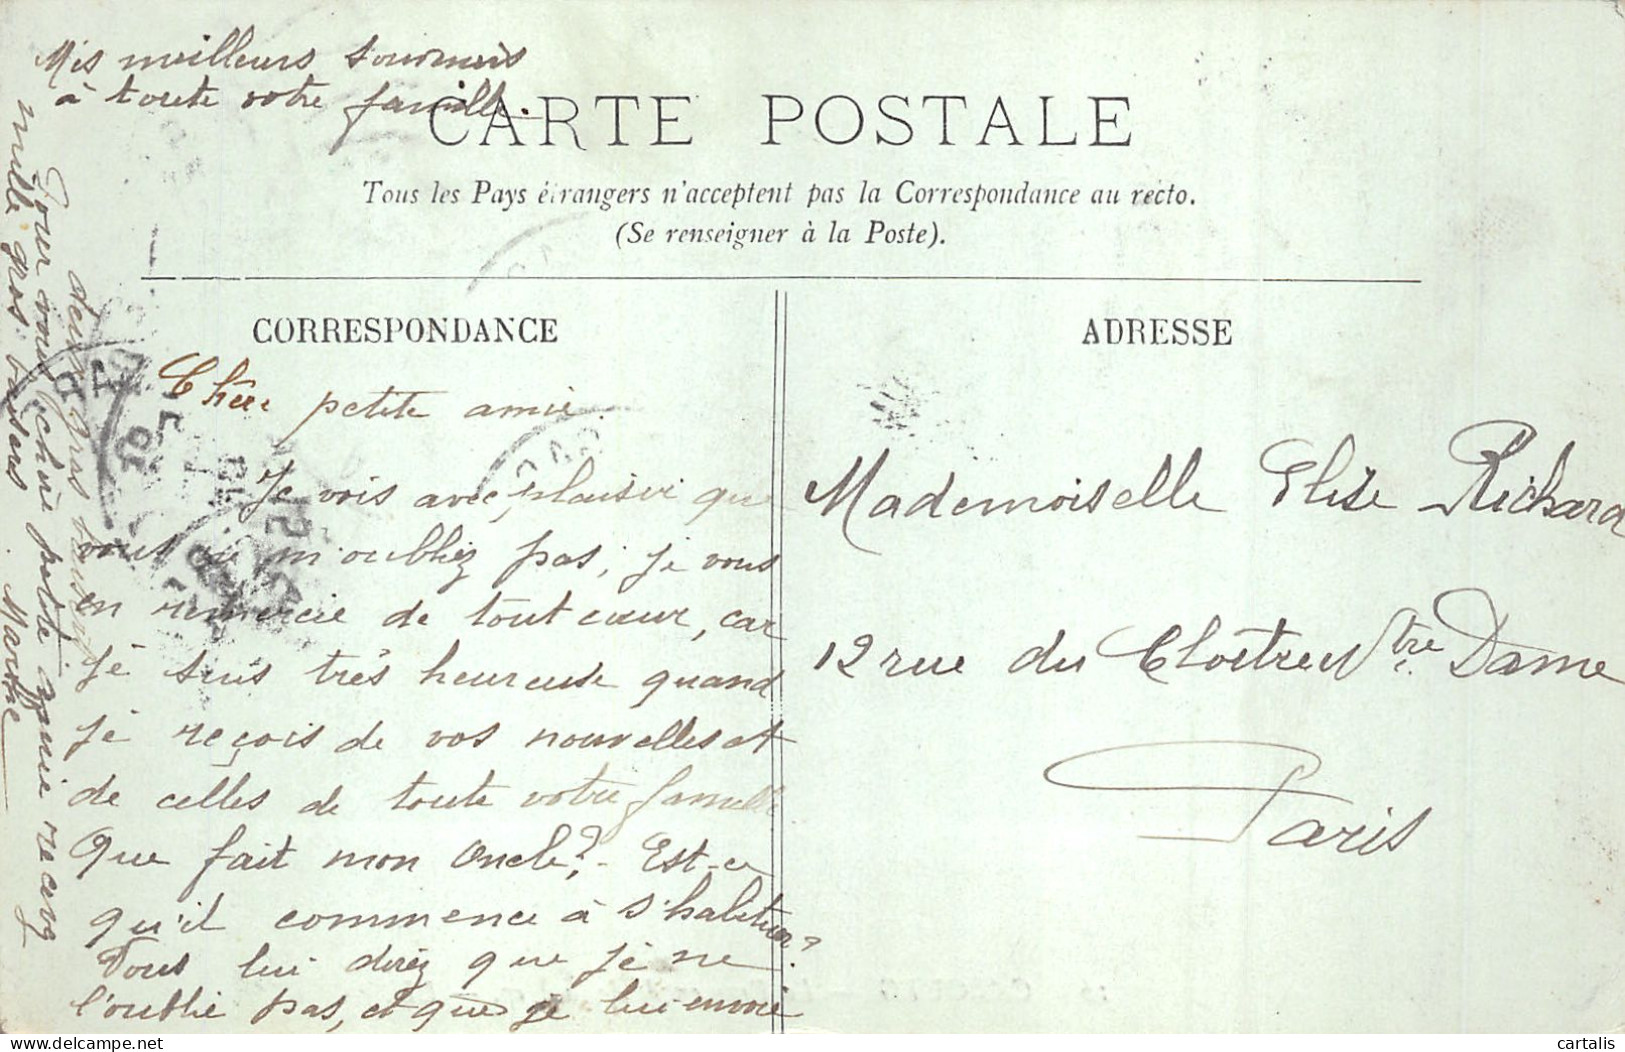 Mes meilleurs souvenirs
à toute votre famille.
CARTE POSTALE
Tous les Pays étrangers n'acceptent pas la Correspondance au recto.
(Se renseigner à la Poste).
CORRESPONDANCE
Chère petite amie.
Je vois avec plaisir que
vous ne m'oubliez pas, je vous
en remercie de tout cœur, car
je suis très heureuse quand
je reçois de vos nouvelles et
de celles de toute votre famille
Que fait mon Oncle? - Est-ce
qu'il commence à s'habituer?
Vous lui direz que je ne
l'oublie pas, et que je lui envoie
deux gros baisers
Pour vous chère petite amie recevez
mille gros baisers. Marthe
ADRESSE
Mademoiselle Elise Richard
12 rue du Cloître Ntre Dame
Paris
cartalis